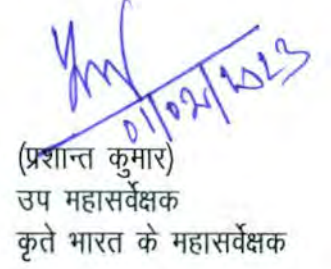 01/02/2023
(प्रशान्त कुमार)
उप महासर्वेक्षक
कृते भारत के महासर्वेक्षक